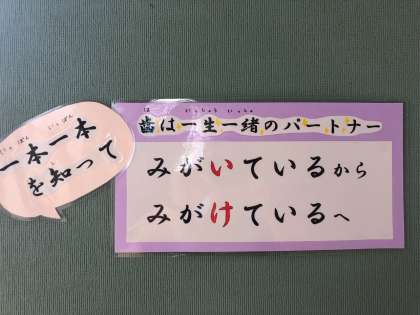 いっぽん いっぽん
一本一本
を知って
は いっしょう いっしょ
歯は一生一緒のパートナー
みがいているから
みがけているへ